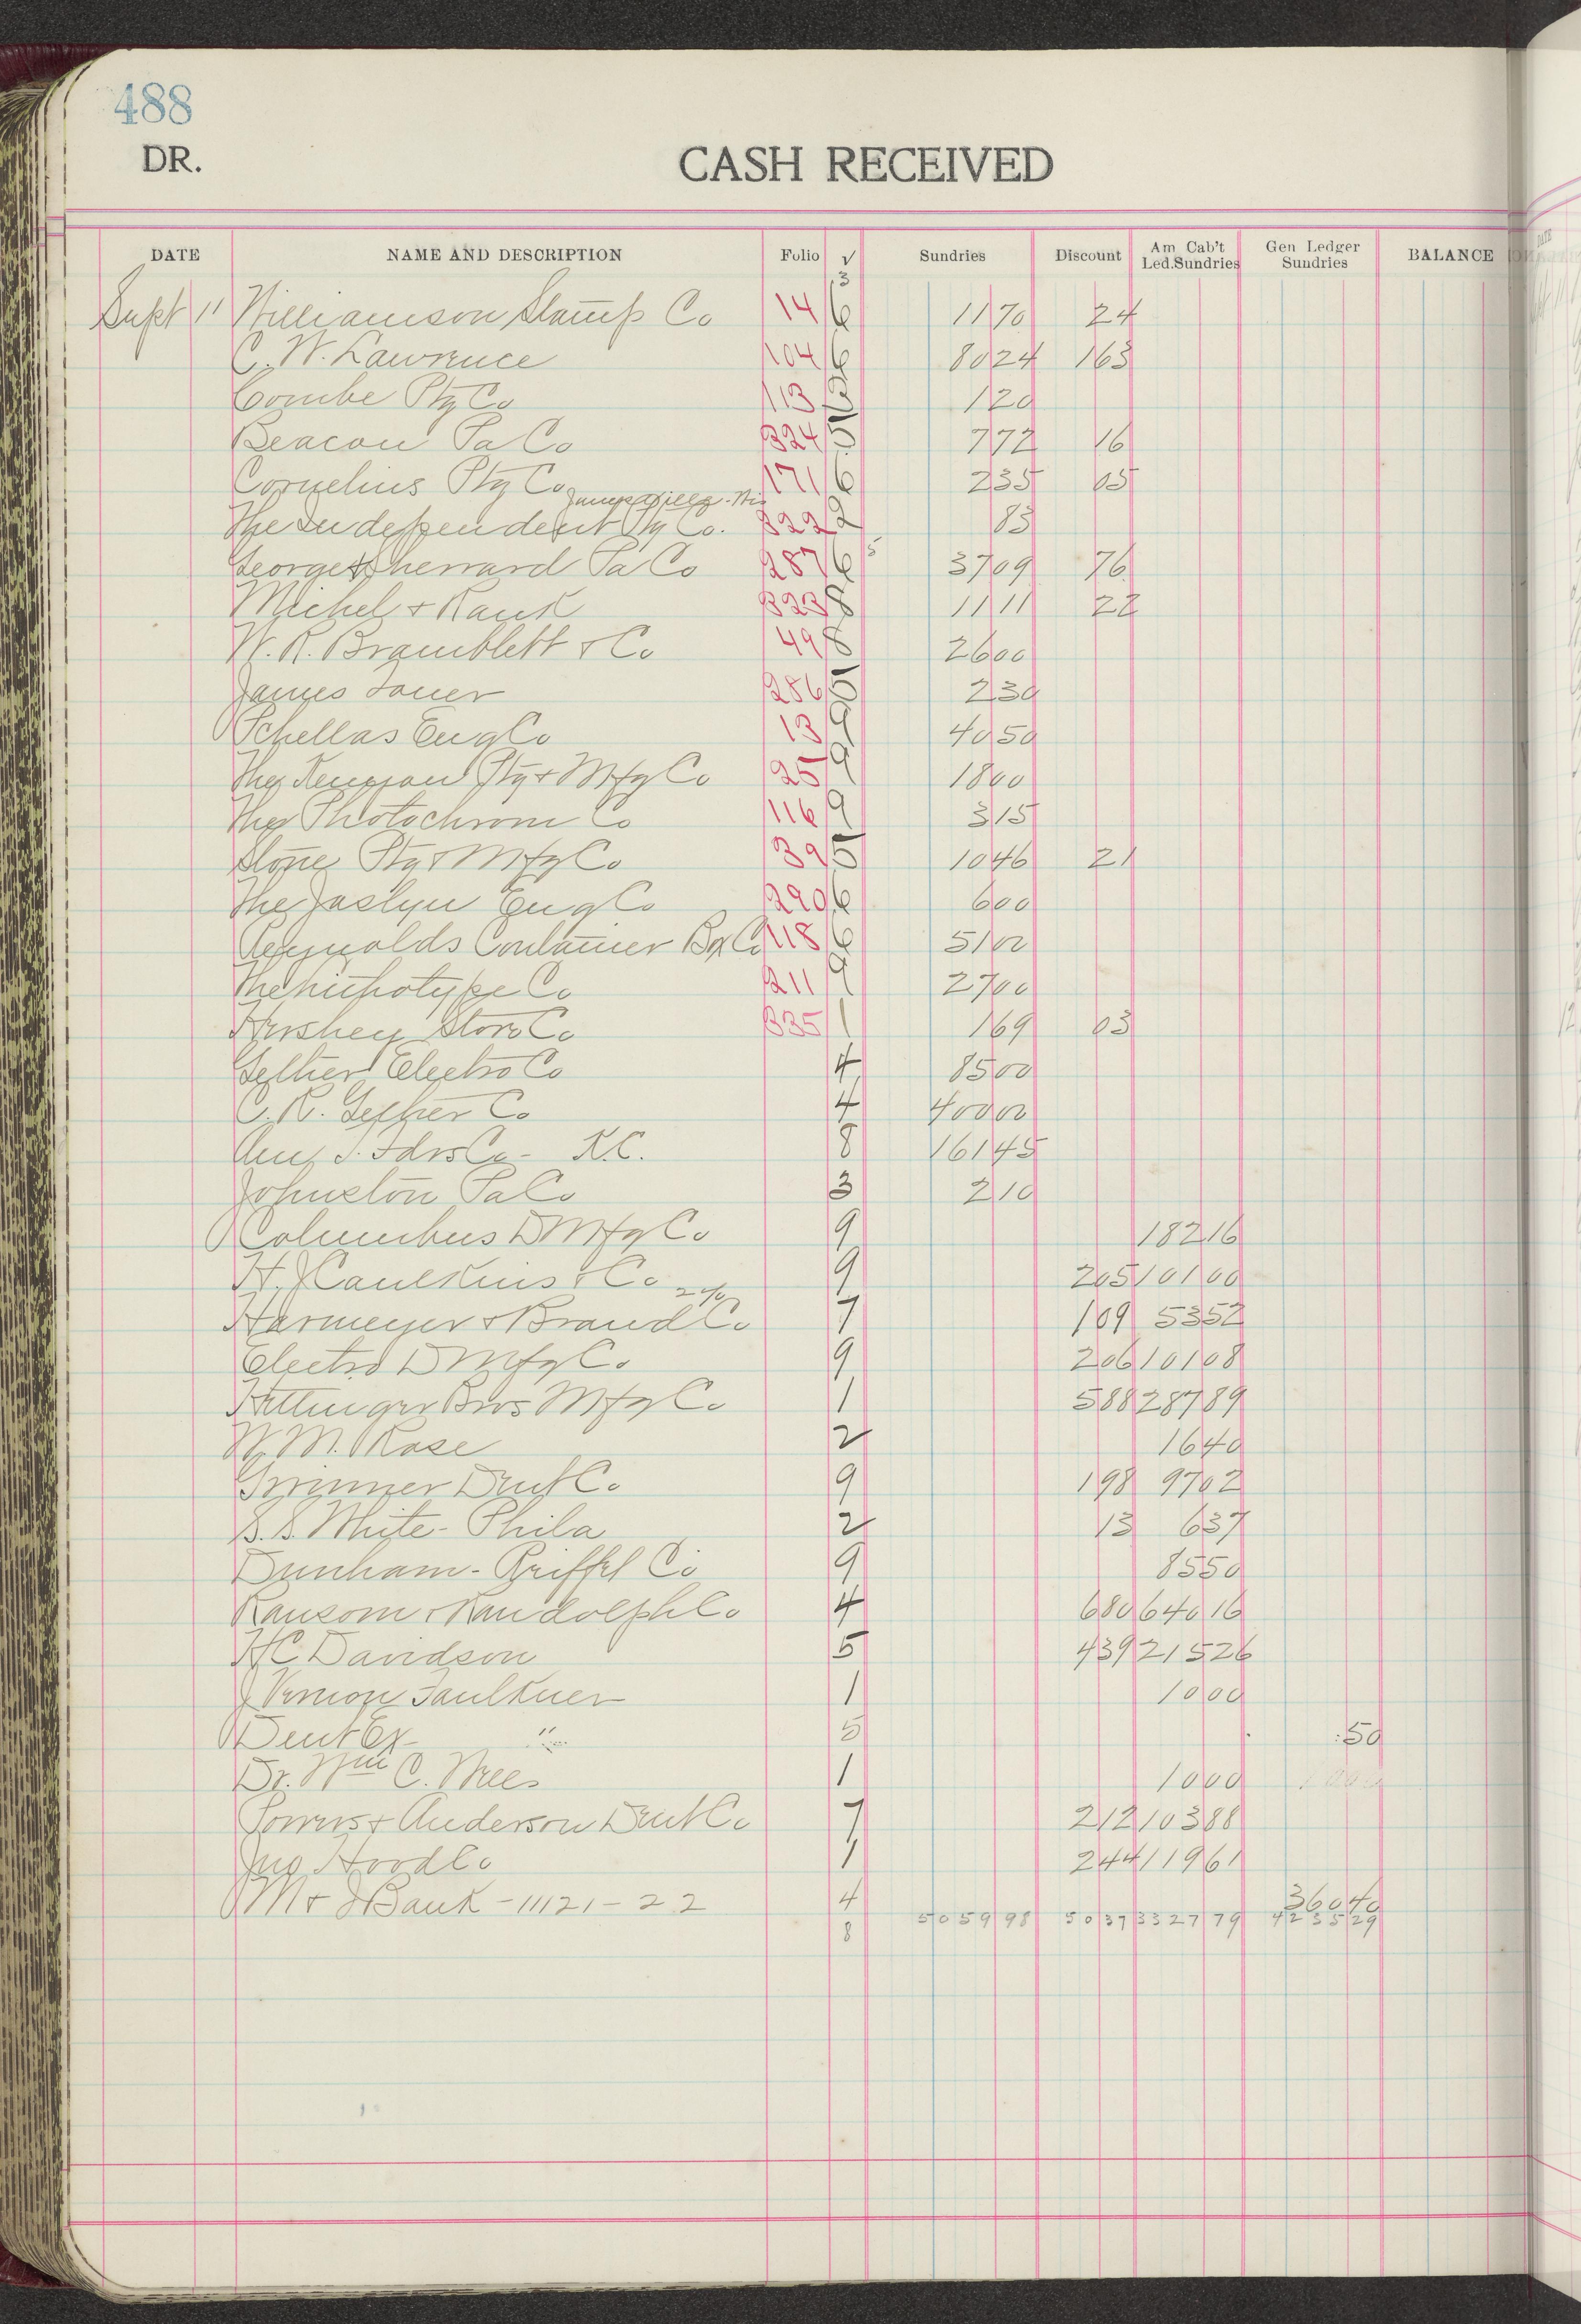 488
DR. CASH RECEIVED
DATE NAME AND DESCRIPTION Folio √ Sundries Discount Am Cab't Led.Sundries Gen Ledger Sundries BALANCE
3
Sept 11 Williamson Stamp Co 14 6 11 70 24
C. W. Lawrence 104 6 80 24 1 63
Combe Ptg Co 113 1 20
Beacon Pa Co 324 5 7 72 16
Cornelius Ptg Co 171 6 2 35 05
Janesville - Wis
The Independent Ptg Co. 322 2 83
George & Sherrard Pa Co 287 6 5 37 09 76
Michel & Rank 323 8 11 11 22
W. R. Bramblett & Co 49 8 26 00
James 286 5 2 30
Schellas Eng Co 13 9 40 50
The Kenyon Ptg & Mfg Co 25 9 18 00
The Photochrom Co 116 9 3 15
Stone Ptg & Mfg Co 39 5 10 46 21
The Joslyn Eng Co 290 6 6 00
Reynolds Container Box Co 118 6 51 00
Co 211 9 27 00
Hershey Store Co 335 1 1 69 03
Gether Electro Co 4 85 00
C. R. Gether Co 4 400 00
Am T. Fdrs Co - K.C. 8 161 45
Johnston Pa Co 3 2 10
Columbus D Mfg Co 9 182 16
H. J Caulkins & Co 9 2 05 101 00
2%
Harmeyer & Brand Co 7 1 09 53 52
Electro D Mfg Co 9 2 06 101 08
Hettinger Bros Mfg Co 1 5 88 287 89
W. M. Rose 2 16 40
Grimmer Dent Co 9 1 98 97 02
S. S. White - Phila 2 13 6 37
Dunham - Griffel Co 9 85 50
Ransom & Randolph Co 4 6 80 640 16
H C Davidson 5 4 39 215 26
J Vernon Faulkner 1 10 00
Dent Ex " 5 50
Dr. Wm C. Wees 1 10 00
Powers & Anderson Dent Co 7 2 12 103 88
Jno Hood Co 1 2 44 119 61
M & I Bank - 11121 - 22 4 360 40
8 5059 98 50 37 3327 79 4235 29